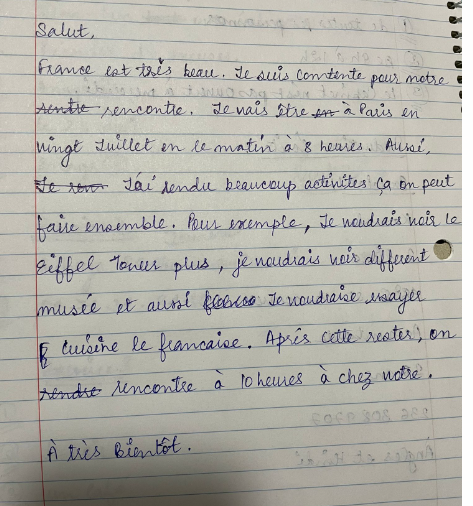 Salut,
France est très beau. Je suis contente pour notre
rentre rencontre. Je vais être en à Paris en
vingt Juillet en le matin à 8 heures. Aussi,
Je ren J'ai rendu beaucoup activites ça on peut
faire ensemble. Pour exemple, Je voudrais voir le
Eiffel Tower plus, je voudrais voir different
musée et aussi Je voudraise essayer
cuisine le francaise. Après cette rester, on
rendre rencontre à 10 heures à chez votre.
À très Bientôt.